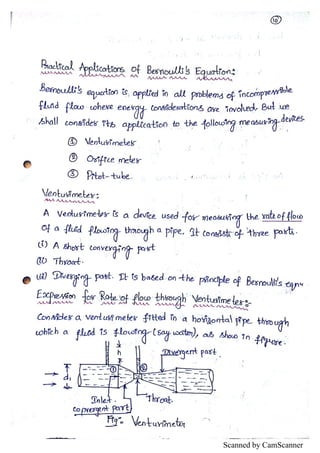 16
Practical Applications of Bernoulli's Equation:
Bernoulli's equation is applied in all problems of incompressible
fluid flow where energy considerations are involved. But we
shall consider its application to the following measuring devices.
① Venturimeter
② Orifice meter
③ Pitot-tube.
Venturimeter:
A Venturimeter is a device used for measuring the rate of flow
of a fluid flowing through a pipe. It consists of three parts.
(i) A short converging part
(ii) Throat.
(iii) Diverging part. It is based on the principle of Bernoulli's eqn
Expression for Rate of flow through Venturimeter:-
Consider a venturimeter fitted in a horizontal pipe through
which a fluid is flowing (say water), as show in figure.
h
Divergent part
① ②
d₁
Inlet.
Throat.
convergent part
Fig: Venturimeter
Scanned by CamScanner